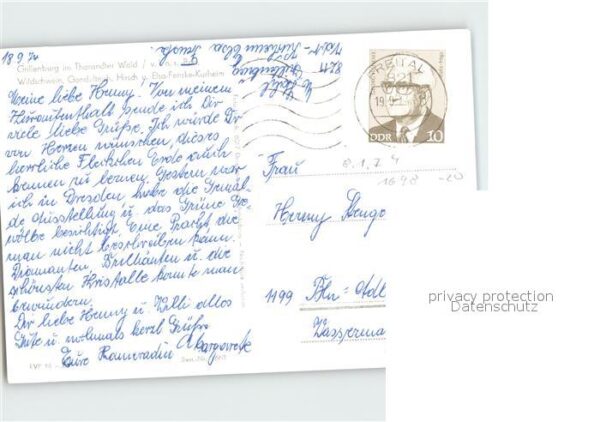 18.9.74
Grillenburg im Tharandter Wald
Wildschwein, Gondelteich, Hirsch u. Elsa-Fenske-Kurheim
Meine liebe Henny! Von meinem
Kuraufenthalt sende ich Dir
viele liebe Grüße. Ich würde Dir
von Herzen wünschen, dieses
herrliche Fleckchen Erde auch
kennen zu lernen. Gestern war
ich in Dresden habe die Gemäl-
de Ausstellung u. das Grüne Ge-
wölbe besichtigt. Eine Pracht die
man nicht beschreiben kann.
Diamanten, Brillianten u. die
schönsten Kristalle konnte man
bewundern.
Dir liebe Henny u. Willi alles
Gute u. nochmals herzl. Grüße
Eure Kameradin
8211
Grillenburg
FREITAL
821
DDR 10
8.1.74
1698 -20
Frau
Henny
1199 Bln.-Adl
Wasserma
EVP
privacy protection
Datenschutz